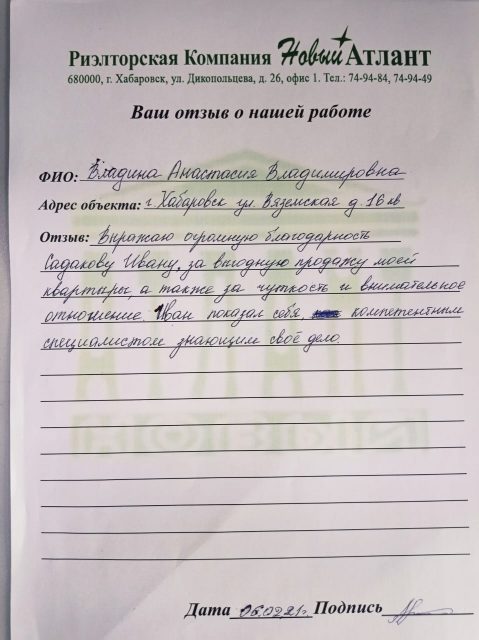 Риэлторская Компания Новый Атлант
680000, г. Хабаровск, ул. Дикопольцева, д. 26, офис 1. Тел.: 74-94-84, 74-94-49
Ваш отзыв о нашей работе
ФИО: Владина Анастасия Владимировна
Адрес объекта: г. Хабаровск ул. Вяземская д. 16 кв
Отзыв: Выражаю огромную благодарность
Садакову Ивану, за выгодную продажу моей
квартиры, а также за чуткость и внимательное
отношение. Иван показал себя, компетентным
специалистом знающим своё дело.
Дата 06.02.21 Подпись